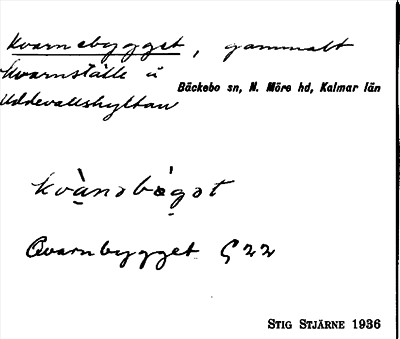 Kvarnebygget, gammalt
kvarnställe å
Bäckebo sn, N. Möre hd, Kalmar län
Uddevallshyltan
kvànəbỳgət
Qvarnbygget G 22
STIG STJÄRNE 1936